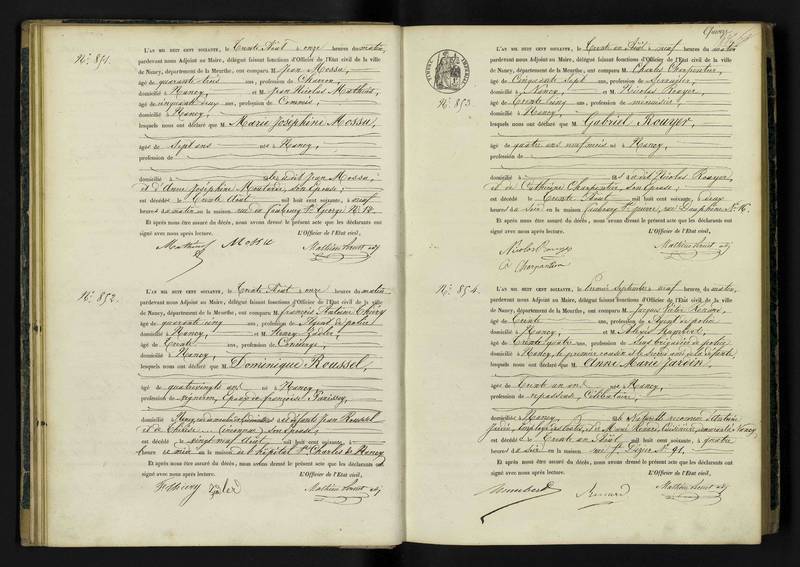 No. 851.
L'AN MIL HUIT CENT SOIXANTE, le trente Août à onze heures du matin,
pardevant nous Adjoint au Maire, délégué faisant fonctions d'Officier de l'État civil de la ville
de Nancy, département de la Meurthe, ont comparu M. Jean Mossu,
âgé de quarante trois ans, profession de Charron,
domicilié à Nancy, et M. Jean Nicolas Mathieu,
âgé de cinquante deux ans, profession de Commis,
domicilié à Nancy,
lesquels nous ont déclaré que M. Marie Joséphine Mossu,
âgée de Sept ans née à Nancy,
profession de
domicilié à du dit Jean Mossu,
et d'Anne Joséphine son Epouse,
est décédé le trente Août, mil huit cent soixante, à neuf
heures du matin en la maison rue du faubourg St. George No. 18.
Et après nous être assuré du décès, nous avons dressé le présent acte que les déclarants ont
signé avec nous après lecture. L'Officier de l'État civil,
Mathieu Mossu
No. 852.
L'AN MIL HUIT CENT SOIXANTE, le trente Août à onze heures du matin,
pardevant nous Adjoint au Maire, délégué faisant fonctions d'Officier de l'État civil de la ville
de Nancy, département de la Meurthe, ont comparu M. françois Antoine Thiery
âgé de quarante cinq ans, profession de Agent de police
domicilié à Nancy, et M. Henry
âgé de trente ans, profession de Concierge,
domicilié à Nancy,
lesquels nous ont déclaré que M. Dominique Roussel,
âgé de quatrevingts ans né à Nancy,
profession de vigneron, Epoux de françoise
domicilié à Nancy, de défunts Jean Roussel
et de Thérèse son Epouse,
est décédé le vingt neuf Août, mil huit cent soixante, à
heure en la maison de l'hôpital St. Charles de Nancy
Et après nous être assuré du décès, nous avons dressé le présent acte que les déclarants ont
signé avec nous après lecture. L'Officier de l'État civil,
No. 853.
L'AN MIL HUIT CENT SOIXANTE, le trente un Août à neuf heures du matin
pardevant nous Adjoint au Maire, délégué faisant fonctions d'Officier de l'État civil de la ville
de Nancy, département de la Meurthe, ont comparu M. Charles Charpentier,
âgé de Cinquante Sept ans, profession de Serrurier,
domicilié à Nancy, et M. Nicolas Rouyer,
âgé de trente cinq ans, profession de menuisier,
domicilié à Nancy,
lesquels nous ont déclaré que M. Gabriel Rouyer,
âgé de quatre ans neuf mois né à Nancy,
profession de
domicilié à du dit Nicolas Rouyer,
et de Catherine Charpentier, son Epouse,
est décédé le trente Août, mil huit cent soixante, à deux
heures du soir en la maison faubourg St. pierre, rue Dauphine No. 16.
Et après nous être assuré du décès, nous avons dressé le présent acte que les déclarants ont
signé avec nous après lecture. L'Officier de l'État civil,
Nicolas Rouyer
C Charpentier
No. 854.
L'AN MIL HUIT CENT SOIXANTE, le premier Septembre à neuf heures du matin,
pardevant nous Adjoint au Maire, délégué faisant fonctions d'Officier de l'État civil de la ville
de Nancy, département de la Meurthe, ont comparu M. Jacques Victor Renard,
âgé de trente ans, profession de Agent de police
domicilié à Nancy, et M. Alexis Humbert,
âgé de trente quatre ans, profession de Sous brigadier de police
domicilié à Nancy, le premier cousin et le second ami de la défunte
lesquels nous ont déclaré que M. Anne Marie Jardin,
âgée de trente un ans née à Nancy,
profession de repasseuse, Célibataire,
domiciliée à Nancy,
est décédé le trente un Août, mil huit cent soixante, à quatre
heures du soir en la maison rue St. Dizier No. 91.
Et après nous être assuré du décès, nous avons dressé le présent acte que les déclarants ont
signé avec nous après lecture. L'Officier de l'État civil,
Humbert Renard